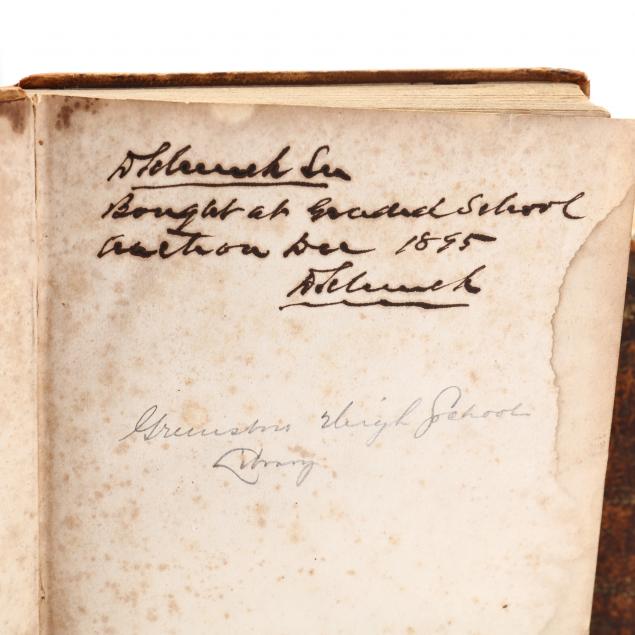 D Schenck Sr
Bought at Graded School
auction Dec 1895
D Schenck
Greensboro High School
Library